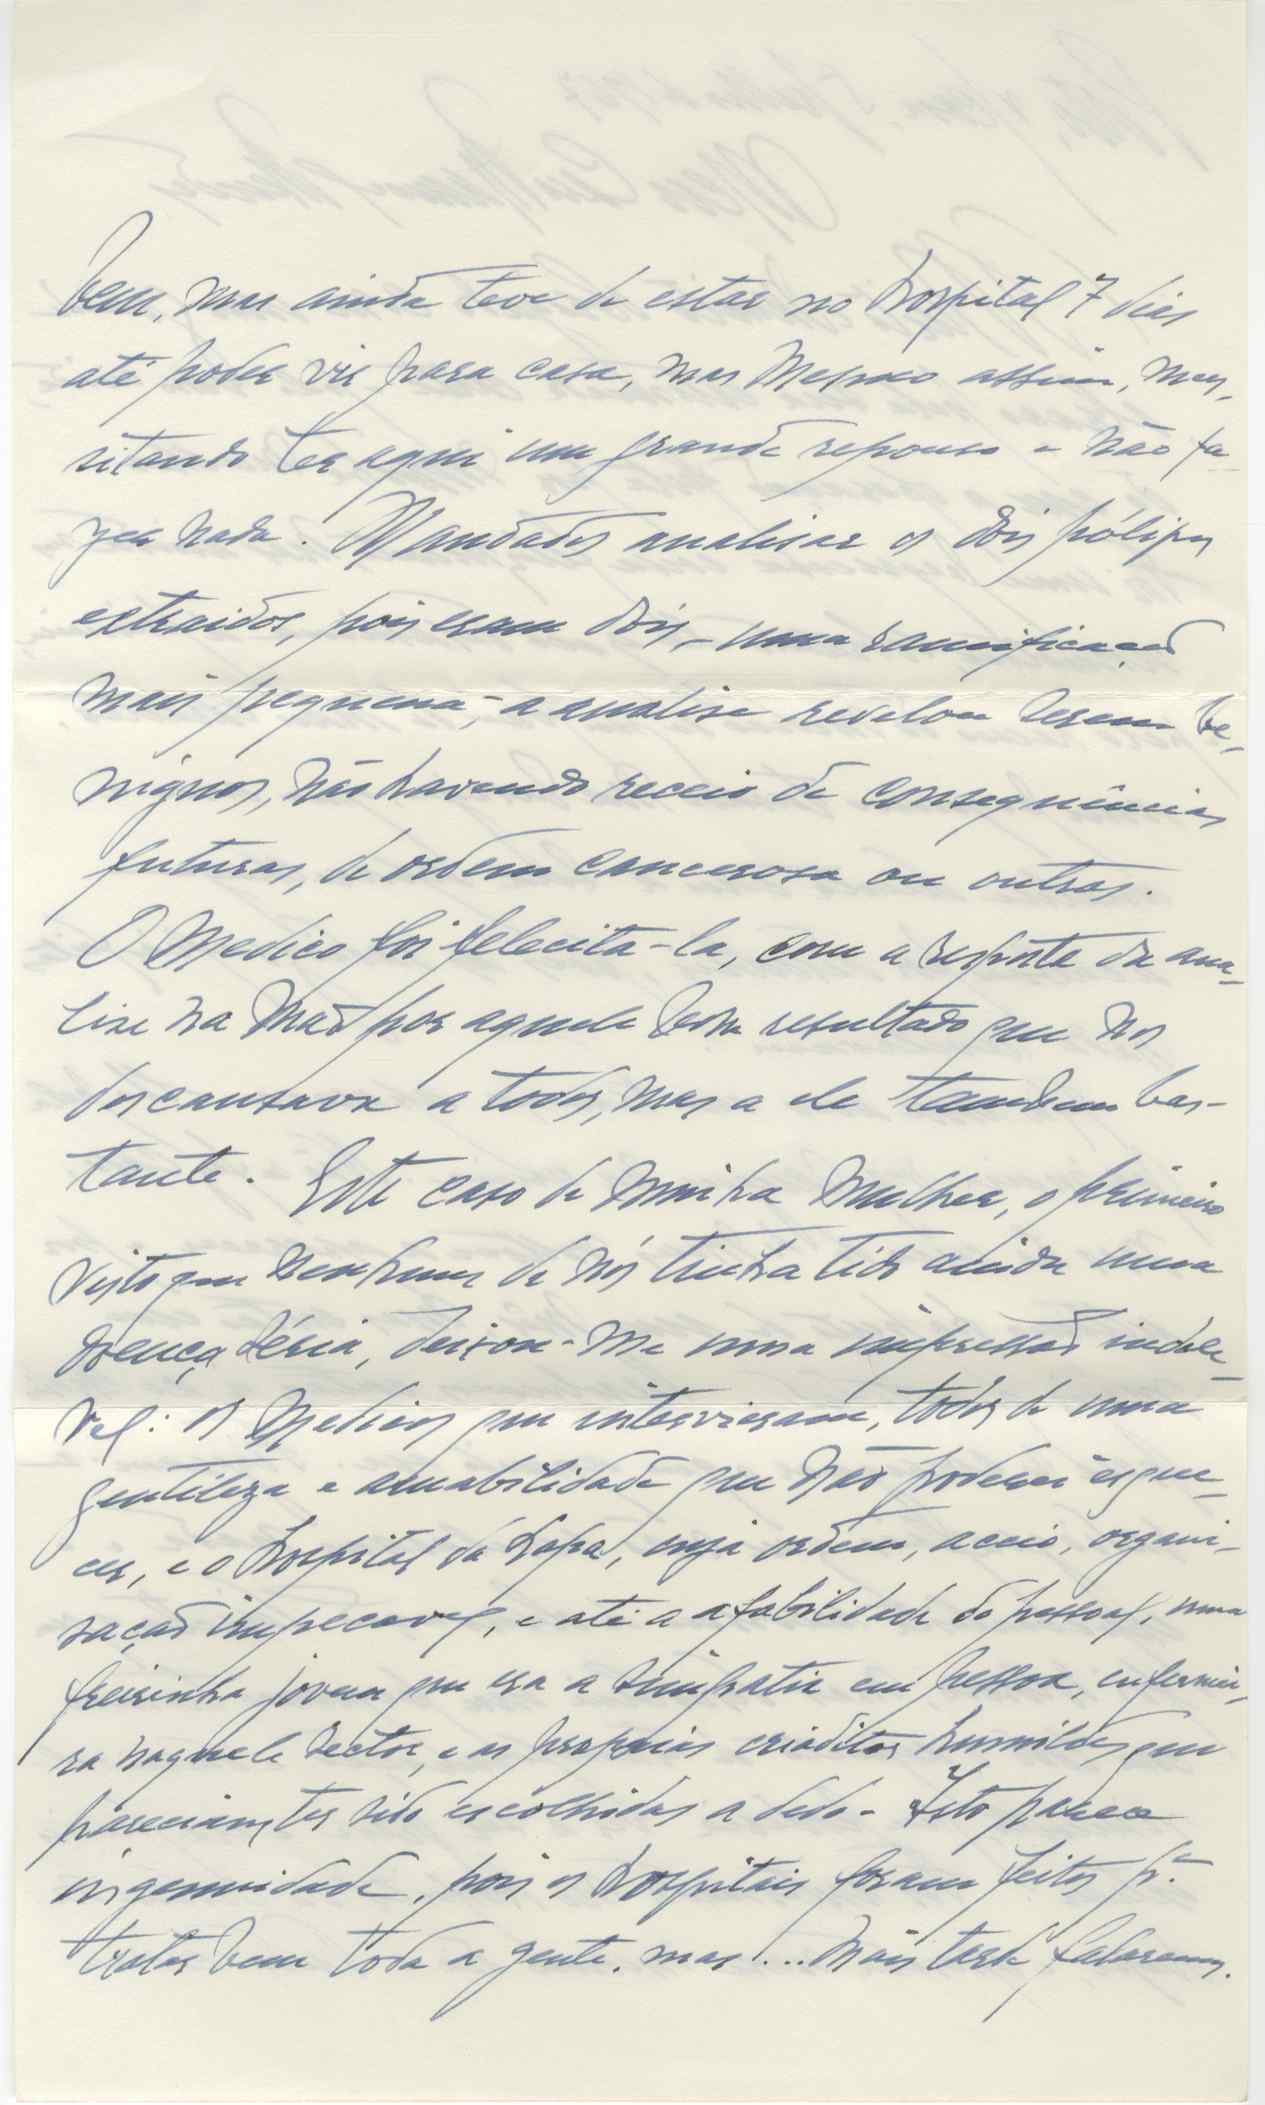 bem, mas ainda teve de estar no hospital 7 dias
até poder vir para casa, mas mesmo assim,
sitando ter aqui um grande repouso e não fa-
zer nada. Mandados analisar os dois pólipos
extraidos, pois eram dois, - uma ramificação
mais pequena -, a analise revelou serem be-
nignos, não havendo receio de consequências
futuras, de ordem cancerosa ou outras.
O Medico foi felecita-la, com a resposta da ana-
lise na mão por aquele bom resultado que nos
descansava a todos, mas a ele tambem bas-
tante. Este caso de minha mulher, o primeiro
visto que nenhum de nós tinha tido ainda uma
doença séria, deixou-me uma impressão indele-
vel: os Medicos que intervieram, todos de uma
gentileza e amabilidade que não poderei esque-
cer, e o hospital da Lapa, cuja ordem, aceio, organi-
sação impecavel, e até a afabilidade do pessoal, uma
freirinha jovem que era a simpatia em pessoa, enfermei-
ra naquele sector, e as proprias criaditas humildes que
pareciam ter sido escolhidas a dedo - Isto parece
ingenuidade, pois os hospitais foram feitos pª.
tratar bem toda a gente, mas.... mais tarde falaremos.